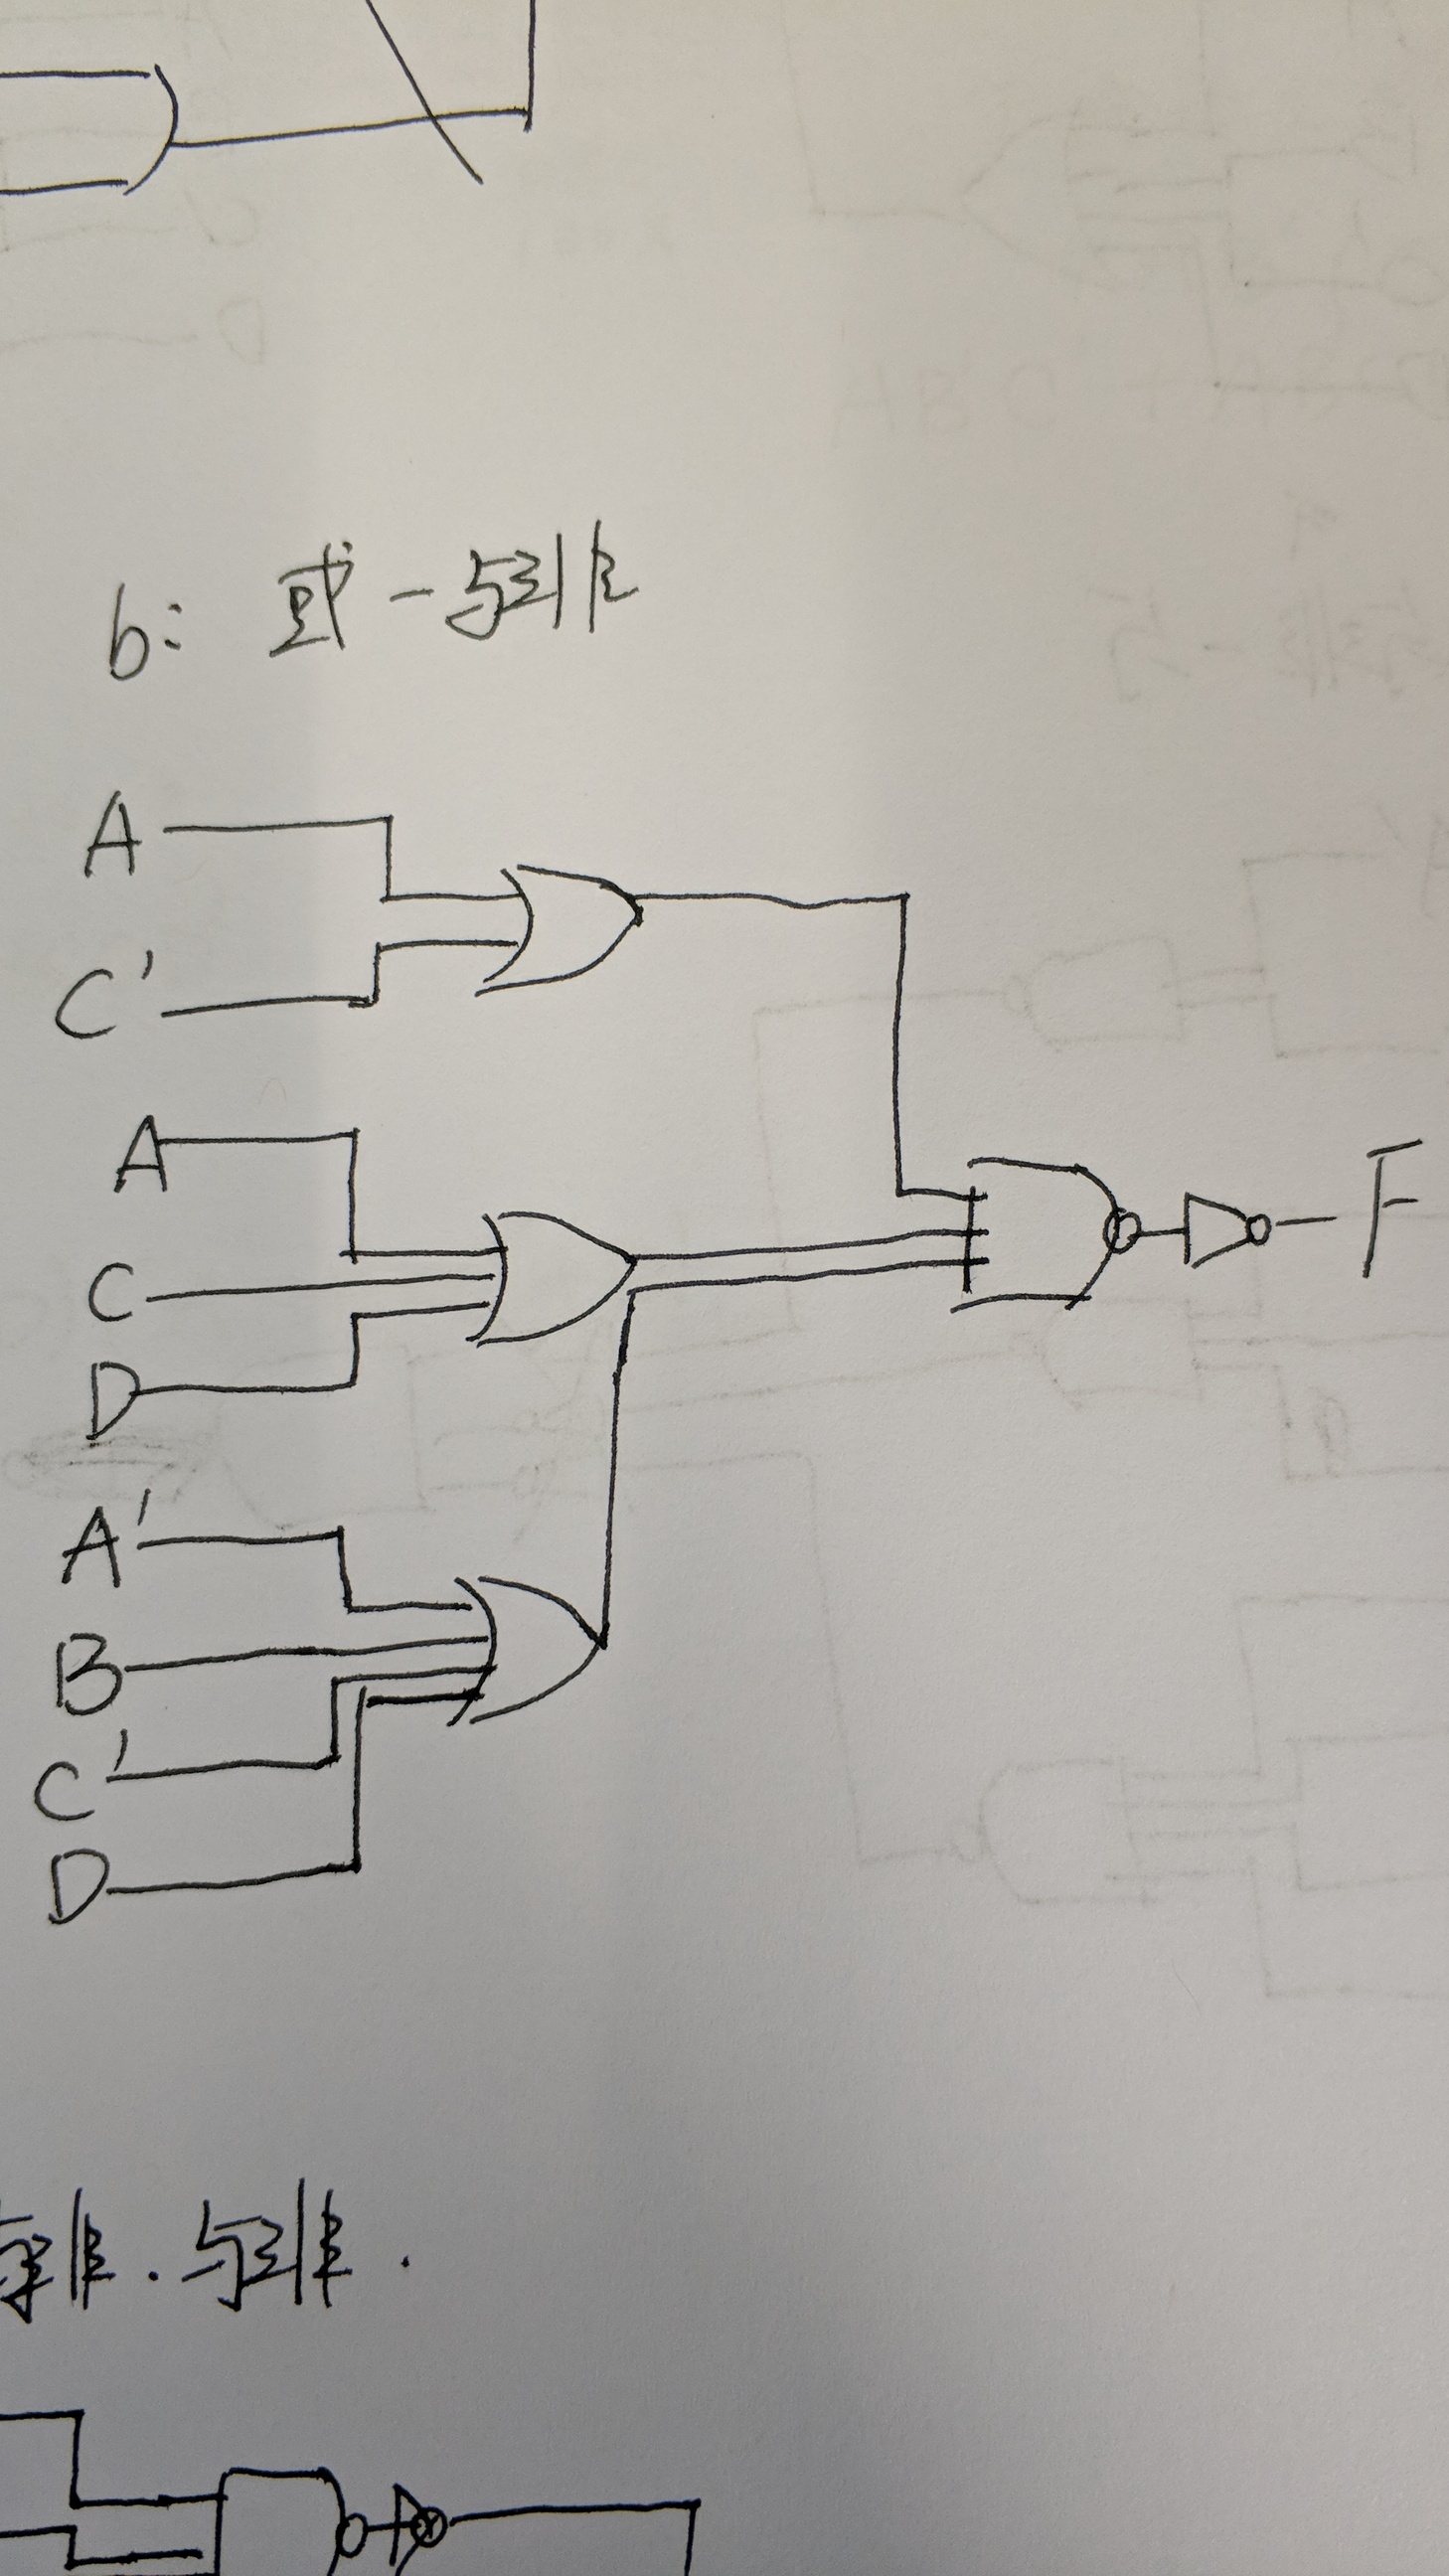 b: 或-与非
A
C'
A
C
D
F
A'
B
C'
D
与非.与非.